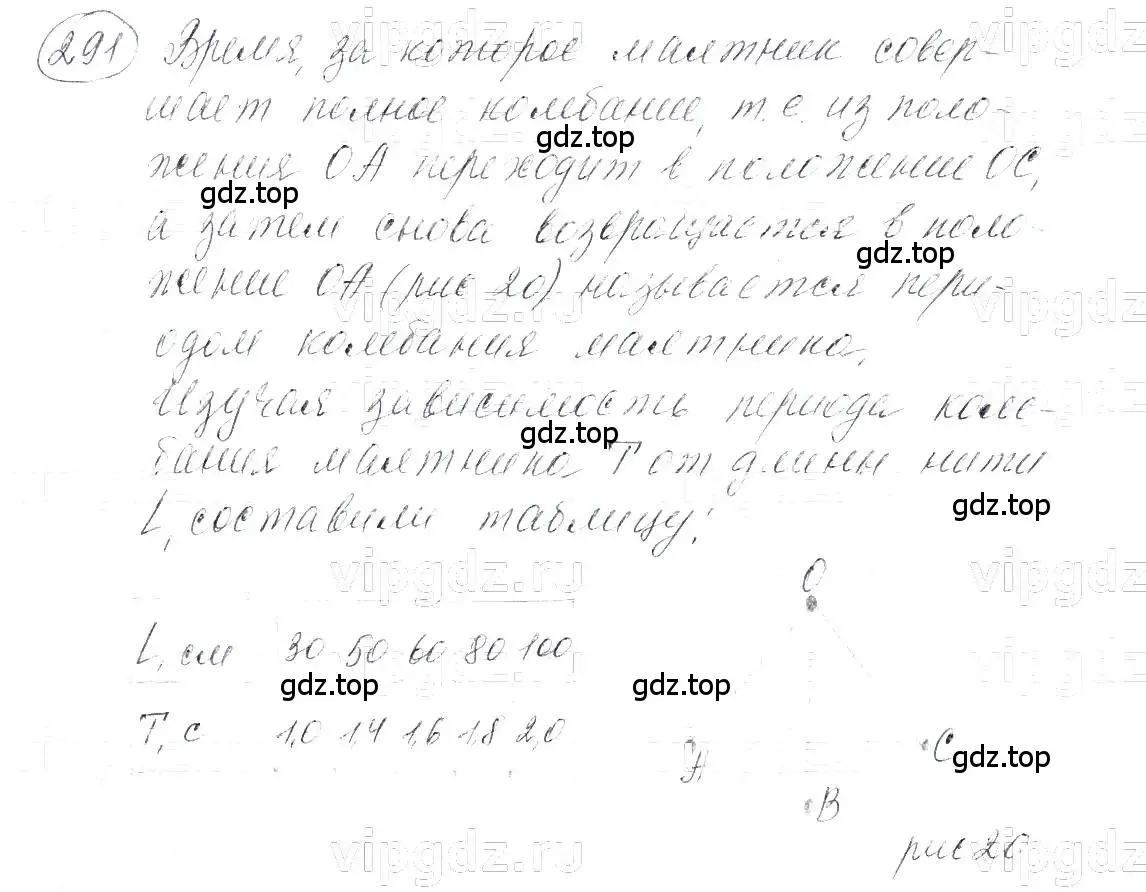 291 Время, за которое маятник совер-
шает полное колебание, т.е. из поло-
жения ОА переходит в положение ОС,
а затем снова возвращается в поло
жение ОА (рис 20) называется пери-
одом колебания маятника.
Изучая зависимость периода коле-
бания маятника Т от длины нити
L, составили таблицу:
О
L, см 30 50 60 80 100
Т, с 1,0 1,4 1,6 1,8 2,0
А
С
В
рис 20
vipgdz.ru
gdz.top